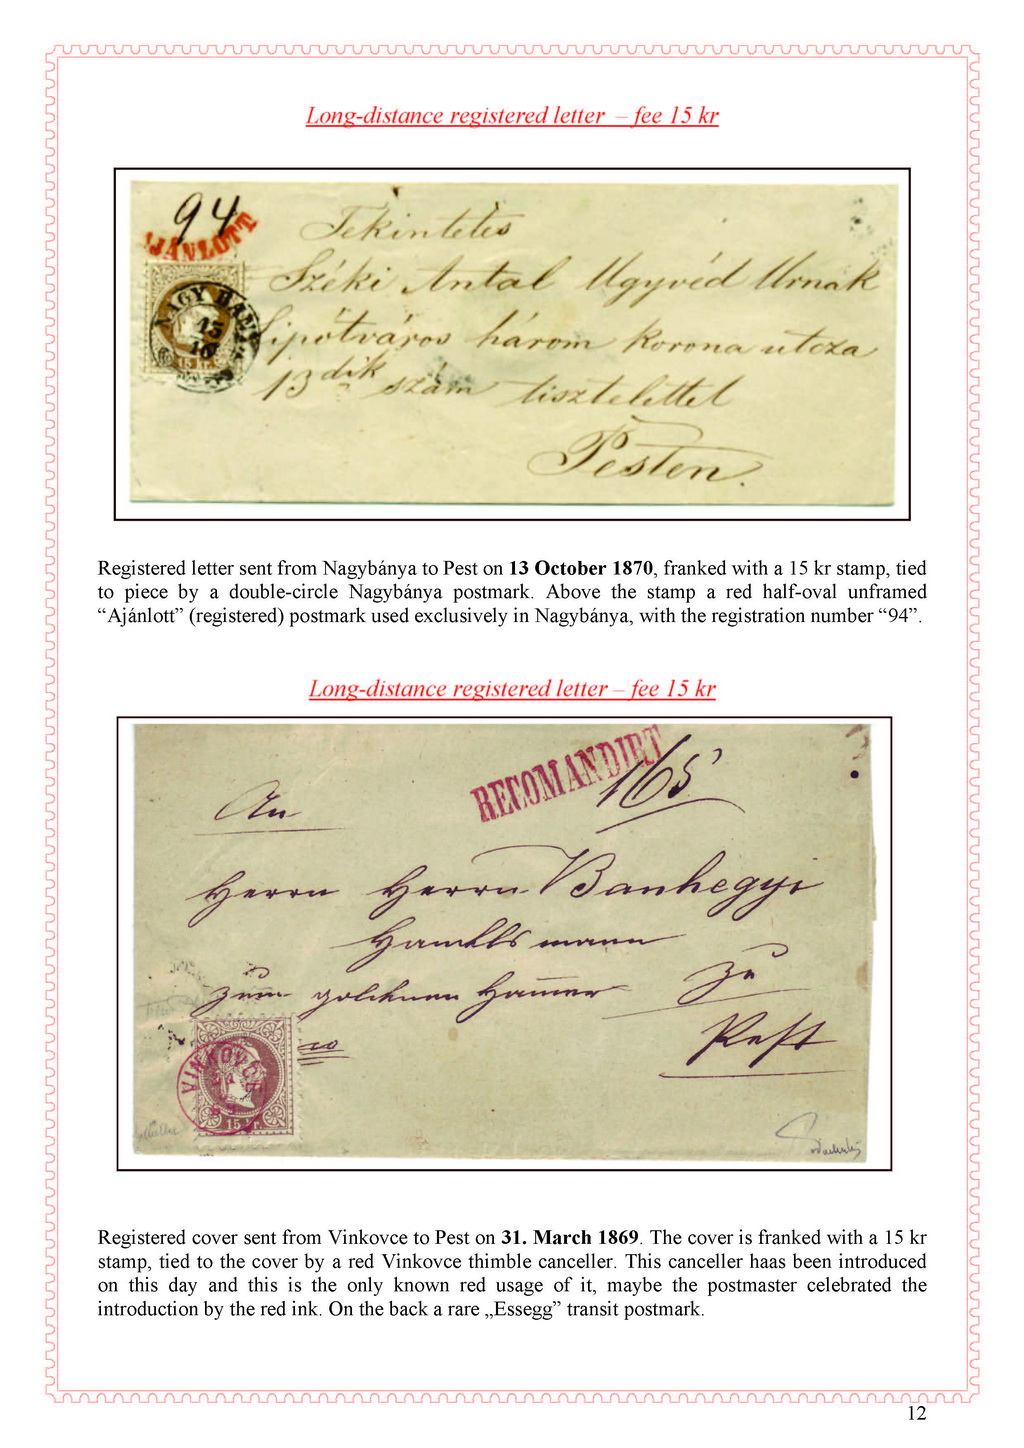 Long-distance registered letter – fee 15 kr
94
AJÁNLOTT
Tekintetes
Széki Antal Ugyvéd Urnak
NAGY BÁNYA
15
10
15 kr.
Lipótváros három korona utcza
13dik szám tisztelettel
Pesten.
Registered letter sent from Nagybánya to Pest on 13 October 1870, franked with a 15 kr stamp, tied
to piece by a double-circle Nagybánya postmark. Above the stamp a red half-oval unframed
“Ajánlott” (registered) postmark used exclusively in Nagybánya, with the registration number “94”.
Long-distance registered letter – fee 15 kr
RECOMANDIRT
165
An
Herrn Herrn Banhegyi
Handlsmann
zum goldenen Hammer zu
Pest
VINKOVCE
15 kr.
Registered cover sent from Vinkovce to Pest on 31. March 1869. The cover is franked with a 15 kr
stamp, tied to the cover by a red Vinkovce thimble canceller. This canceller haas been introduced
on this day and this is the only known red usage of it, maybe the postmaster celebrated the
introduction by the red ink. On the back a rare „Essegg” transit postmark.
12